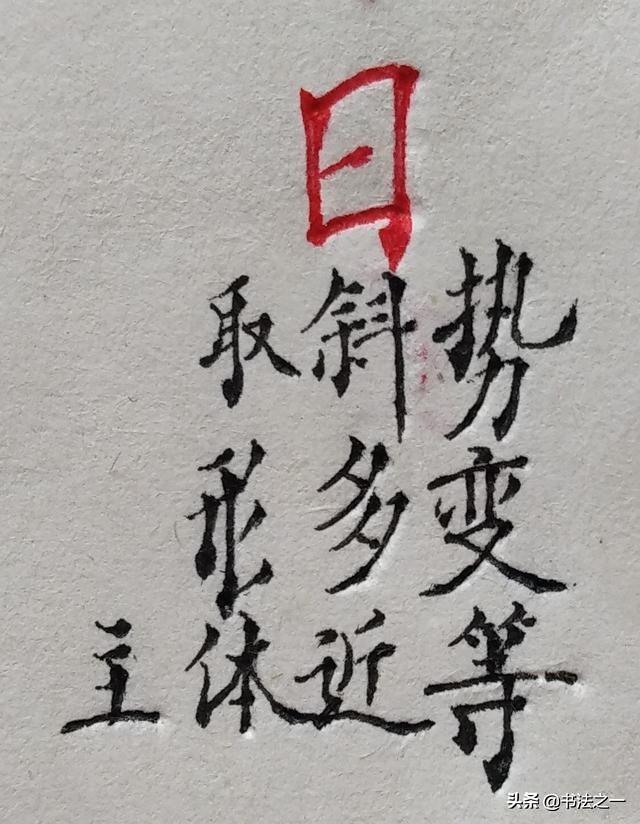 日
取斜势
形多变
主体近等
头条 @书法之一